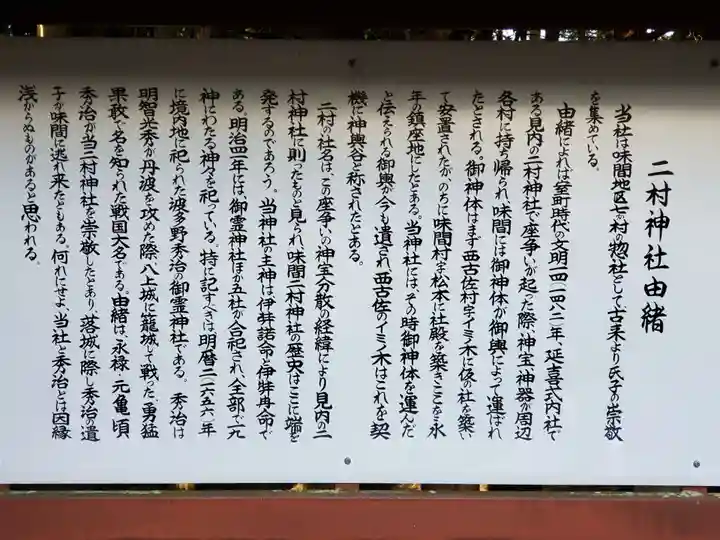 二村神社由緒
当社は味間地区七か村の惣社として古来より氏子の崇敬
を集めている。
由緒によれば室町時代の文明一四(一四八二)年、延喜式内社で
ある見内の二村神社で座争いが起った際、神宝、神器が周辺
各村に持ち帰られ、味間には御神体が御輿によって運ばれ
たとされる。御神体はまず西古佐村字イミノ木に仮の社を築い
て安置されたが、のちに味間村字松本に社殿を築きここを永
年の鎮座地にしたとある。当神社には、その時御神体を運んだ
と伝えられる御輿が今も遺され、西古佐のイミノ木はこれを契
機に神輿谷と称されたとある。
二村の社名は、この座争いの神宝分散の経緯により見内の二
村神社に則ったものと見られ、味間二村神社の歴史はここに端を
発するのであろう。当神社の主神は伊弉諾命と伊弉冉命で
ある。明治四一年には、御霊神社ほか五社が合祀され、全部で九
神にわたる神々を祀っている。特に記すべきは明暦二(一六五六)年
に境内地に祀られた波多野秀治の御霊神社である。秀治は
明智光秀が丹波を攻めた際、八上城に籠城して戦った、勇猛
果敢で名を知られた戦国大名である。由緒は、永禄、元亀頃
秀治が当二村神社を崇敬したとあり、落城に際し秀治の遺
子が味間に逃れ来たともある。何れにせよ、当社と秀治とは因縁
浅からぬものがあると思われる。